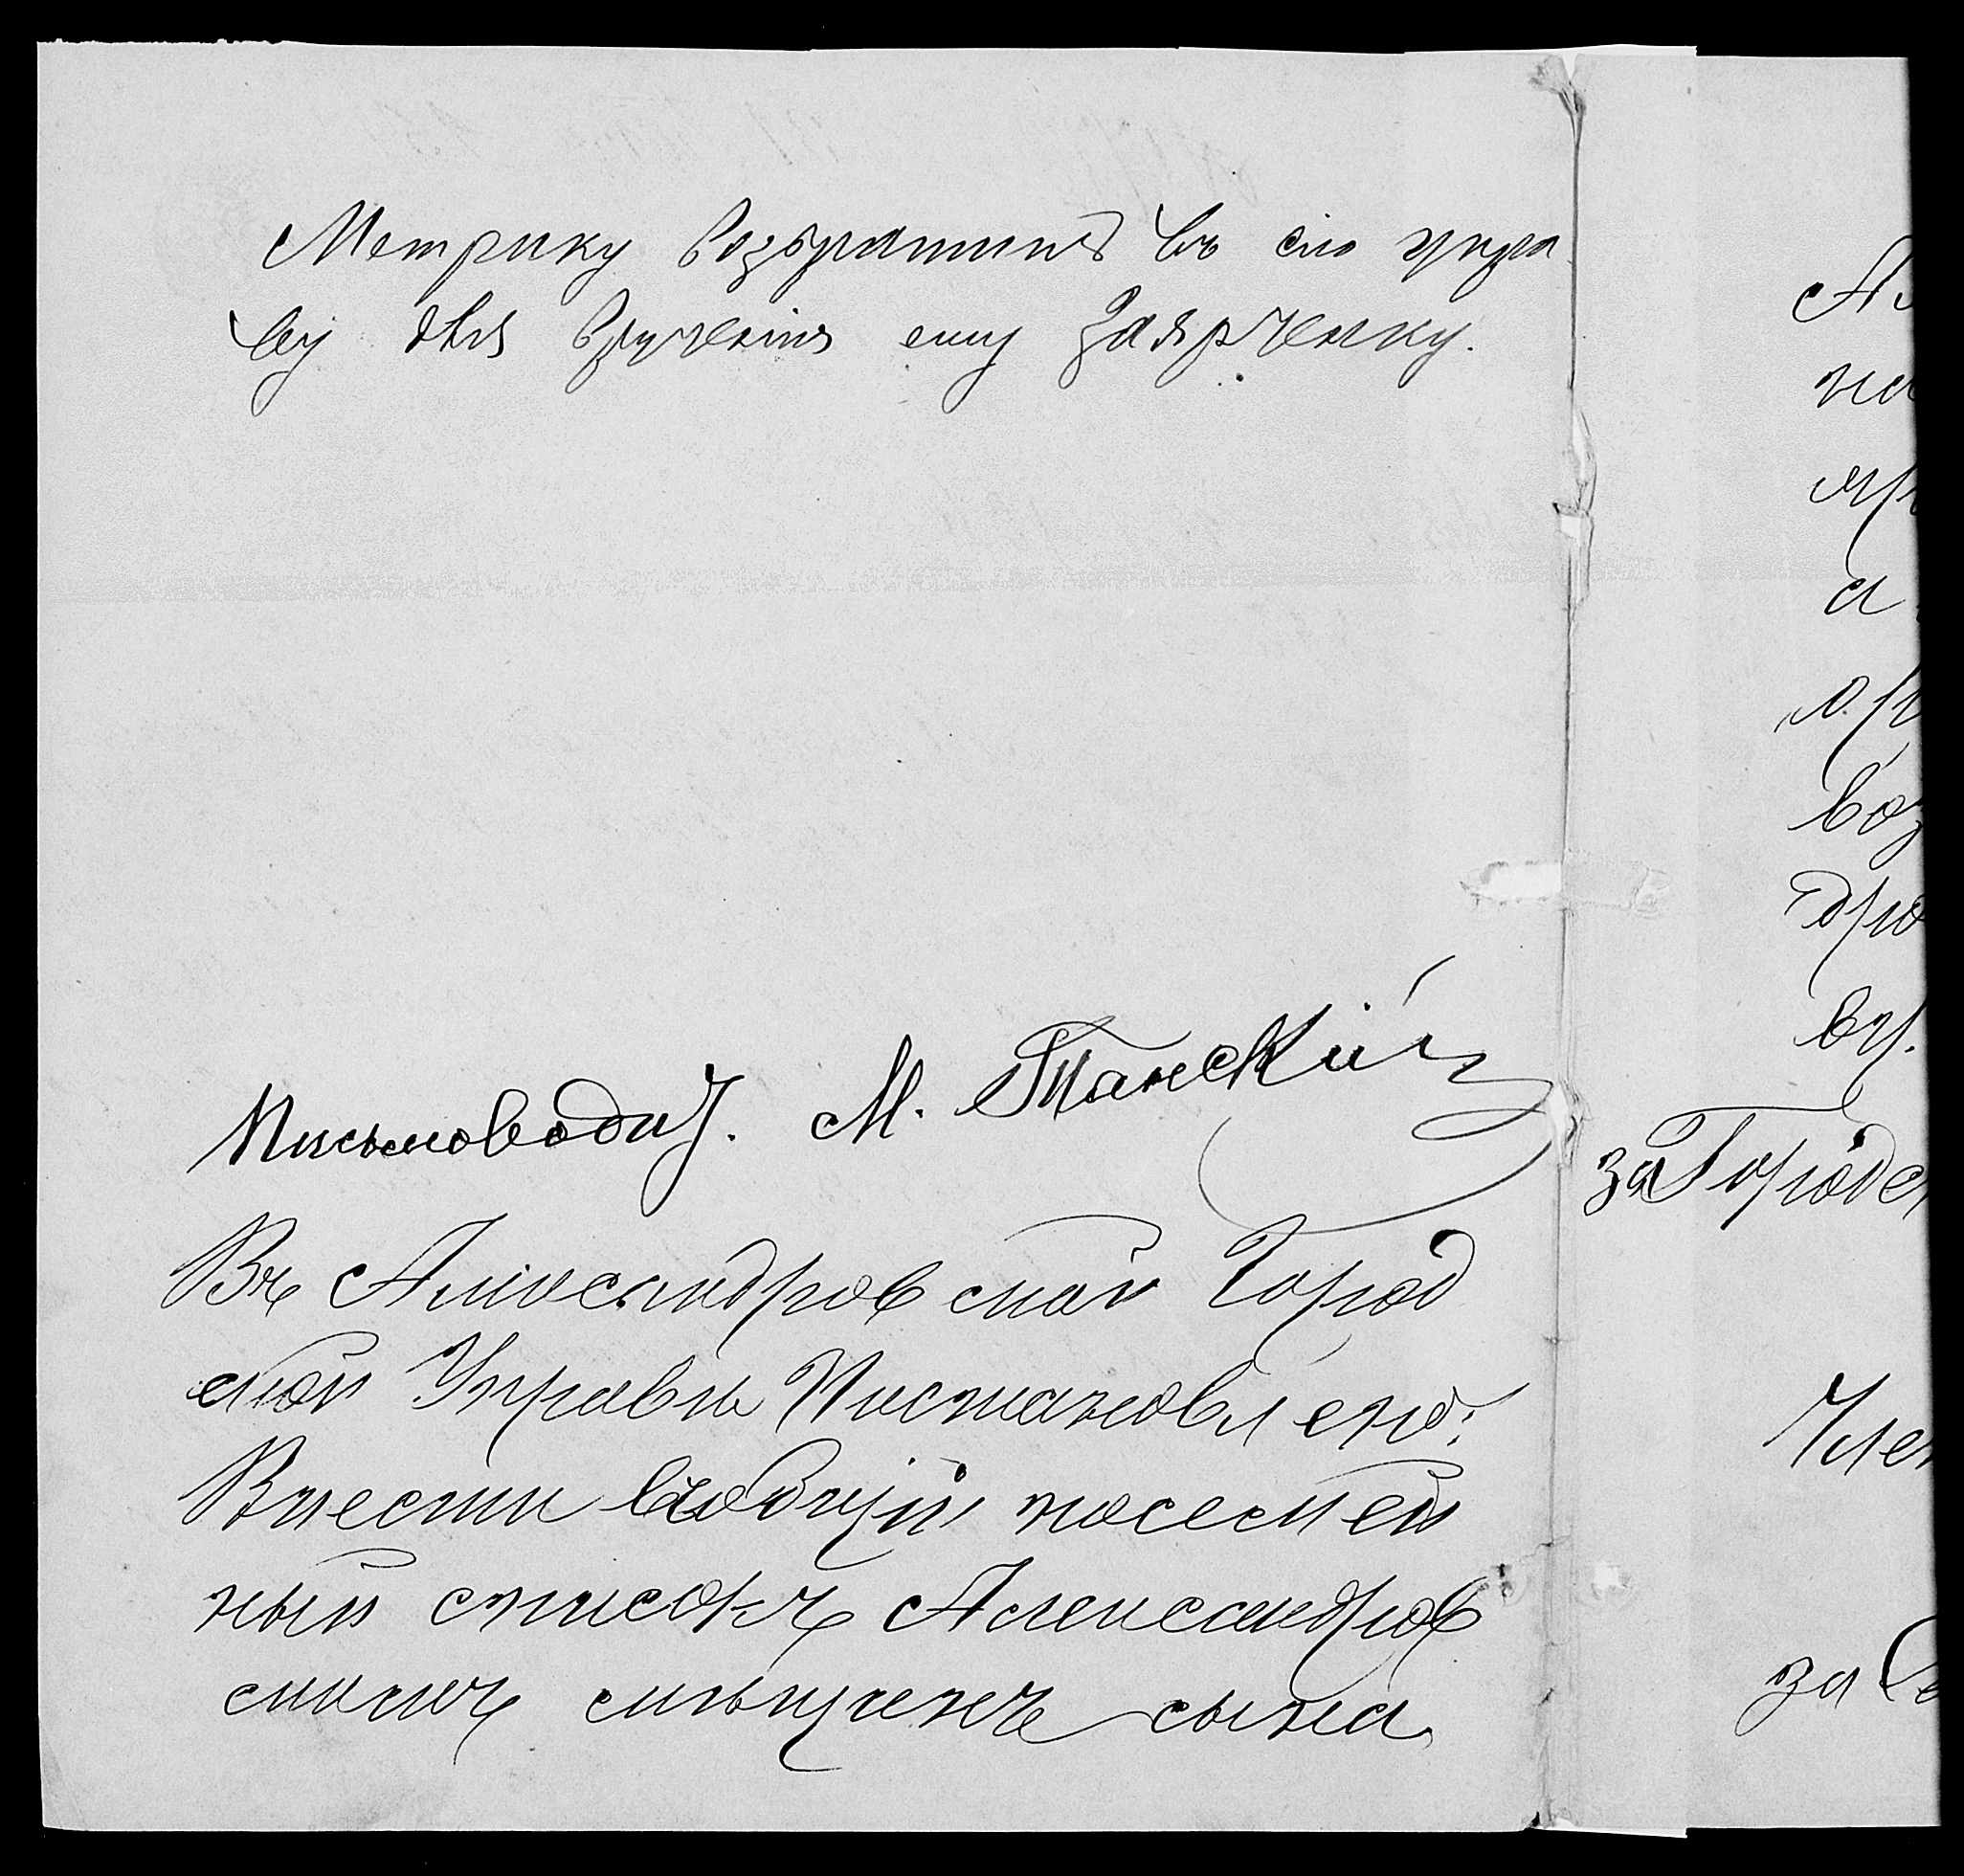 Метрику возвратить въ сію упра-
ву для врученія ему Заярченку.
Письмоводит. М. Танскій
Въ Александровской Город
ской Управѣ Постановлено:
Внести въ общій посемей
ный списокъ Александров
скихъ мѣщанъ сына
Ал
на
яр
а
ву.
за Городск
Член
за Се